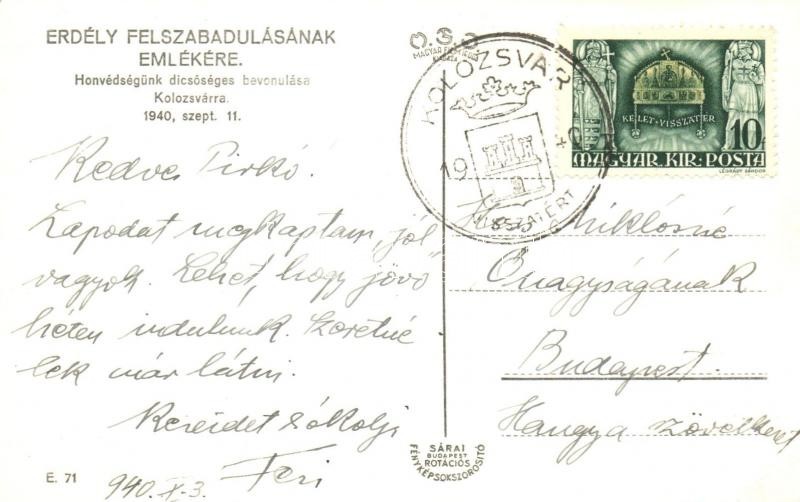 ERDÉLY FELSZABADULÁSÁNAK
EMLÉKÉRE.
Honvédségünk dicsőséges bevonulása
Kolozsvárra.
1940, szept. 11.
Kedves Pirkó!
Lapodat megkaptam, jól
vagyok. Lehet, hogy jövő
héten indulunk. Szeretné
lek már látni.
Kezeidet csókolja
Feri
940. X. 3.
E. 71
KOLOZSVÁR
19 40
VISSZATÉRT
KELET · VISSZATÉR
10
MAGYAR · KIR · POSTA
LÉGRÁDY SÁNDOR
Miklósné
Őnagyságának
Budapest.
Hangya szövetkezet
SÁRAI
BUDAPEST
ROTÁCIÓS
FÉNYKÉPSOKSZOROSÍTÓ